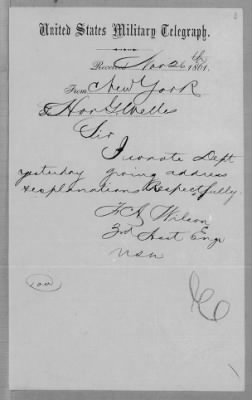 United States Military Telegraph.
Received Nov 26th 1861.
From New York
To Hon G Welles
Sir
I wrote Dept
yesterday giving address
& explanations Respectfully
F A Wilson
3rd Asst Engr
USN